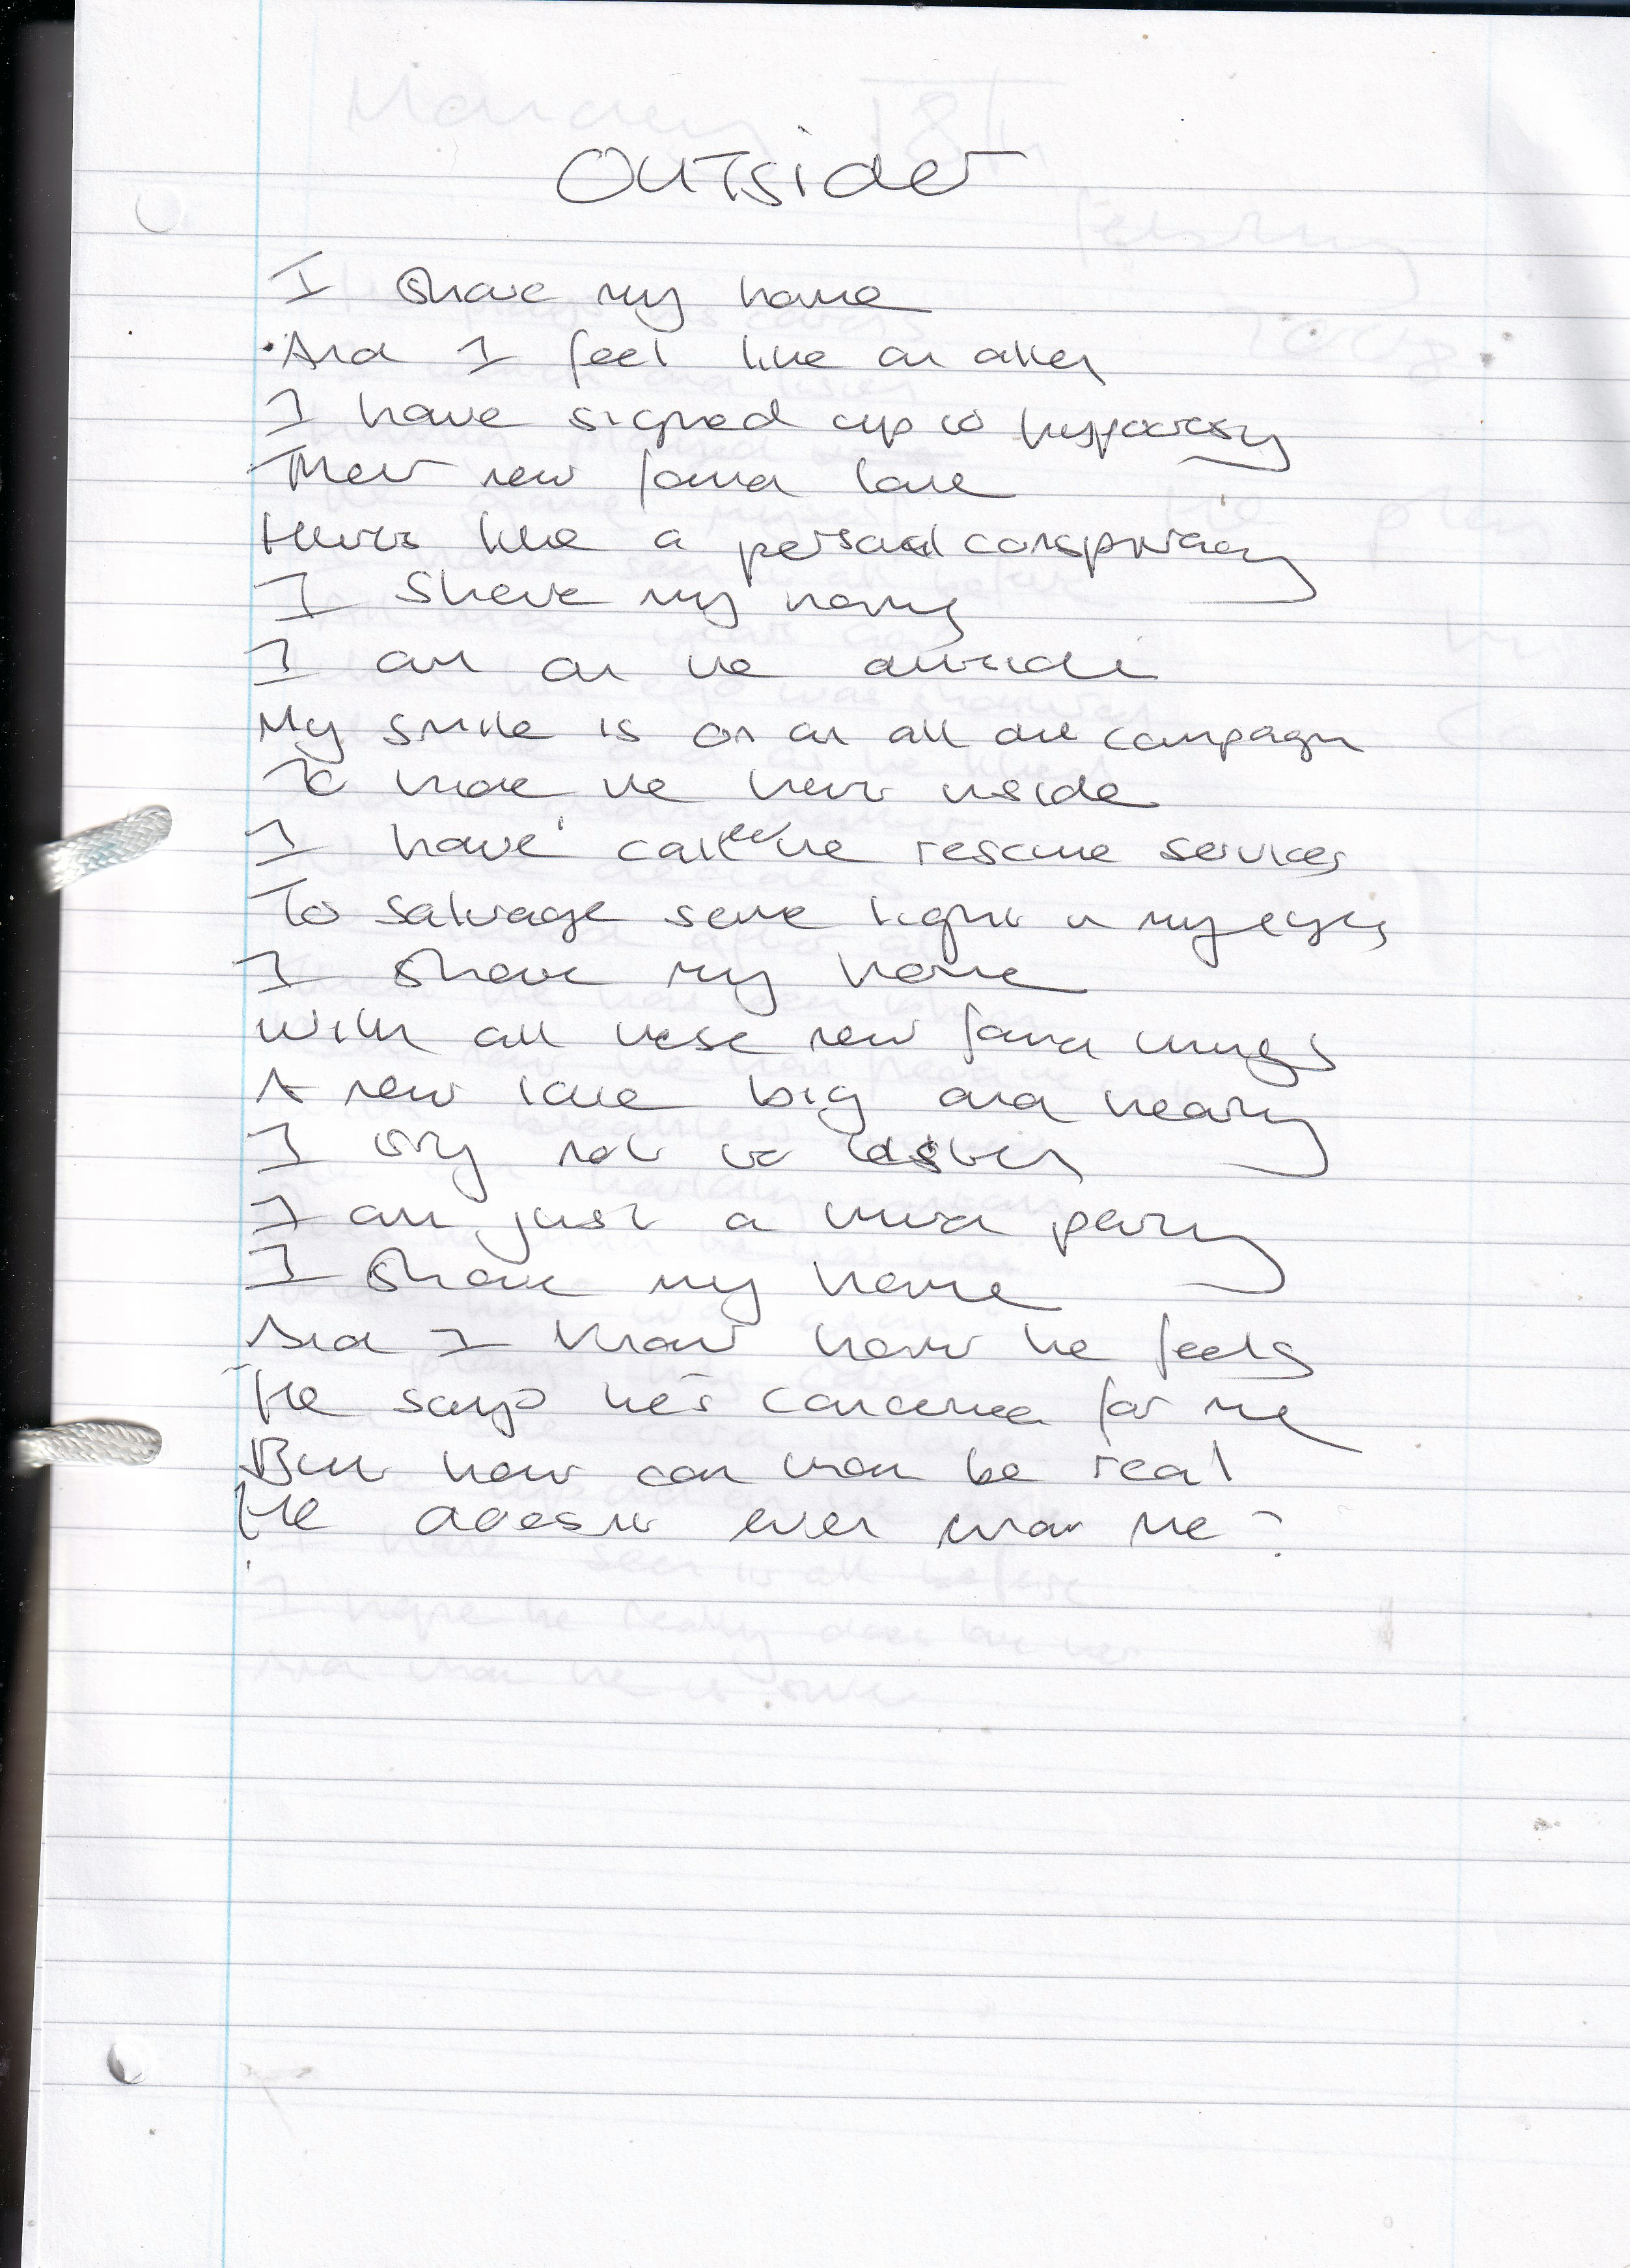 Outsider
I share my home
And I feel like an alien
I have signed up to hypocrisy
Their new found love
Hurts like a personal conspiracy
I share my home
I am on the outside
My smile is on an all out campaign
To hide the hurt inside
I have called the rescue services
To salvage some light in my eyes
I share my home
With all these new found things
A new love big and hearty
I try not to listen
I am just a third party
I share my home
And I know how he feels
He says he's concerned for me
But how can that be real
He doesn't even know me?